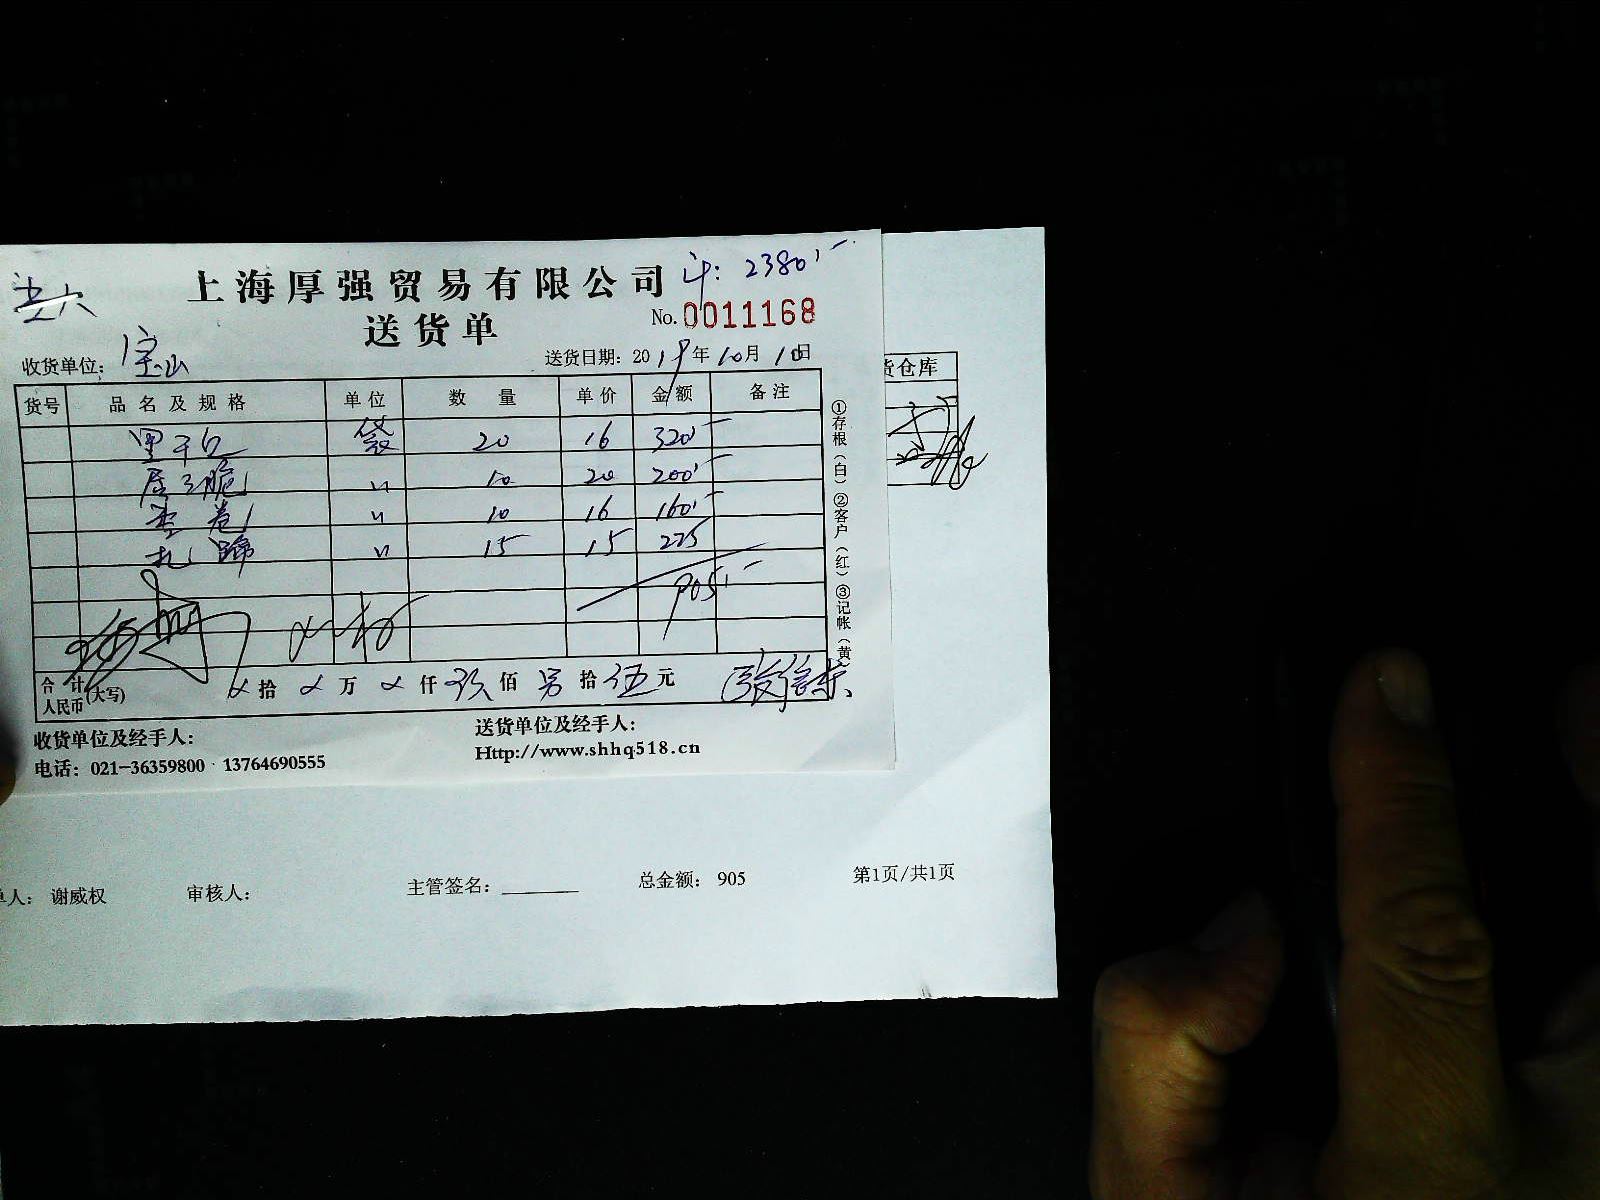 上海厚强贸易有限公司 计: 2380.-
送货单 No. 0011168
收货单位: 宝山 送货日期: 2019年10月10日
货号 品名及规格 单位 数量 单价 金额 备注
里干包 袋 20 16 320.-
脆 〃 10 20 200.-
卷 〃 10 16 160.-
扎蹄 〃 15 15 225
905.-
合计人民币(大写) 拾 万 仟 玖佰 另拾 伍元
收货单位及经手人: 送货单位及经手人:
电话: 021-36359800 13764690555 Http://www.shhq518.cn
①存根(白)②客户(红)③记帐(黄
货仓库
单人: 谢威权 审核人: 主管签名: 总金额: 905 第1页/共1页